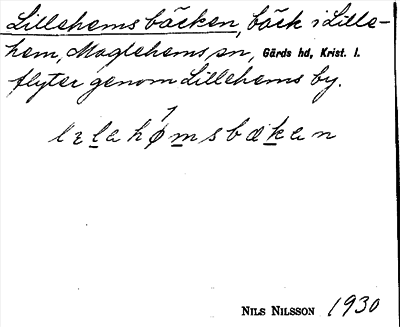 Lillehems bäcken, bäck i Lille-
hem, Maglehems sn, Gärds hd, Krist. l.
flyter genom Lillehems by.
lɛlahømsbækan
NILS NILSSON 1930